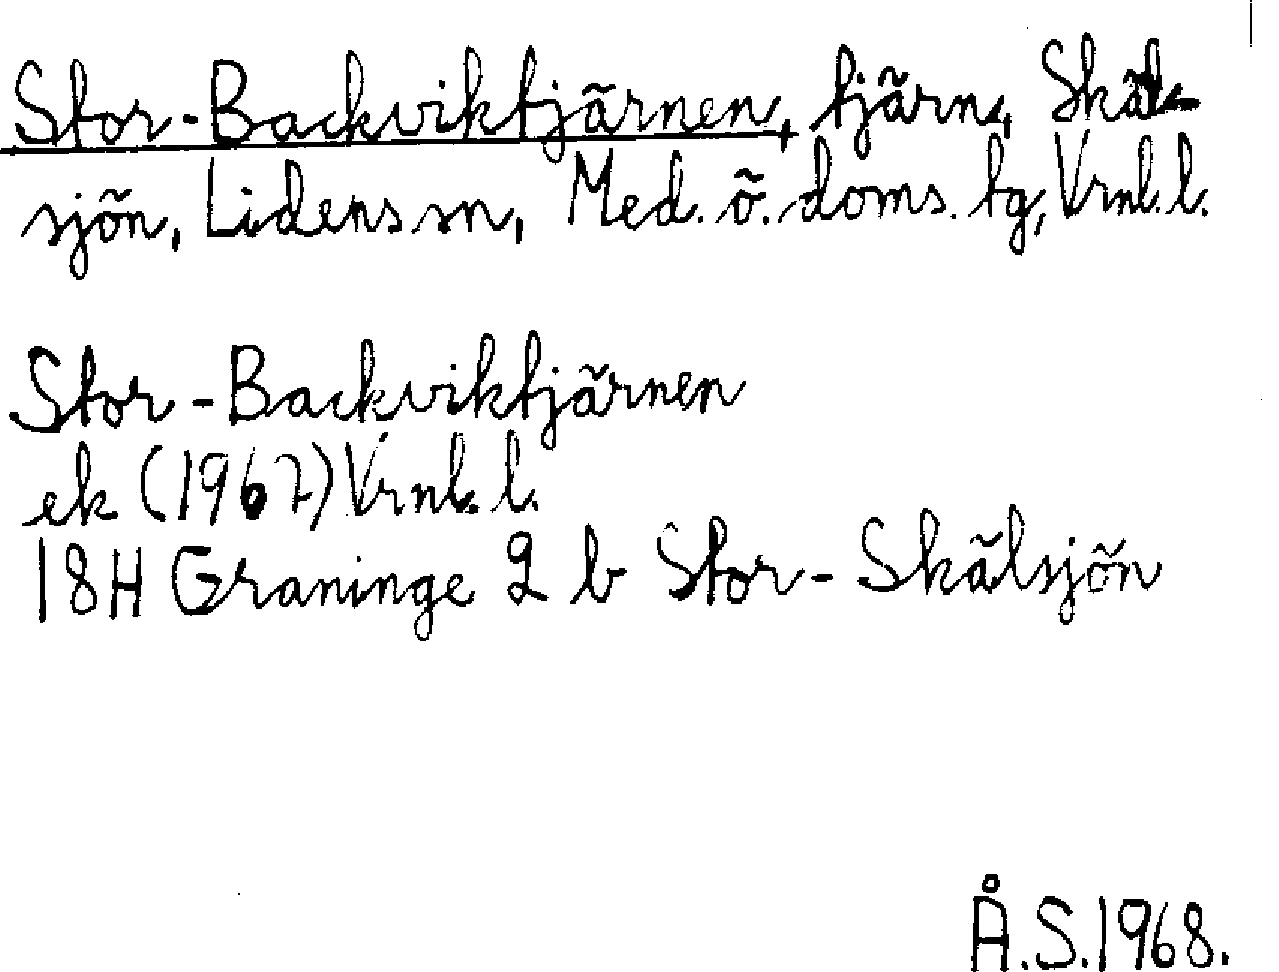 Stor-Backviktjärnen, tjärn, Skäl-
sjön, Lidens sn, Med. ö. doms. tg, Vrnl. l.
Stor-Backviktjärnen
ek (1967) Vrnl. l.
18H Graninge 2 b Stor-Skälsjön
Å.S.1968.